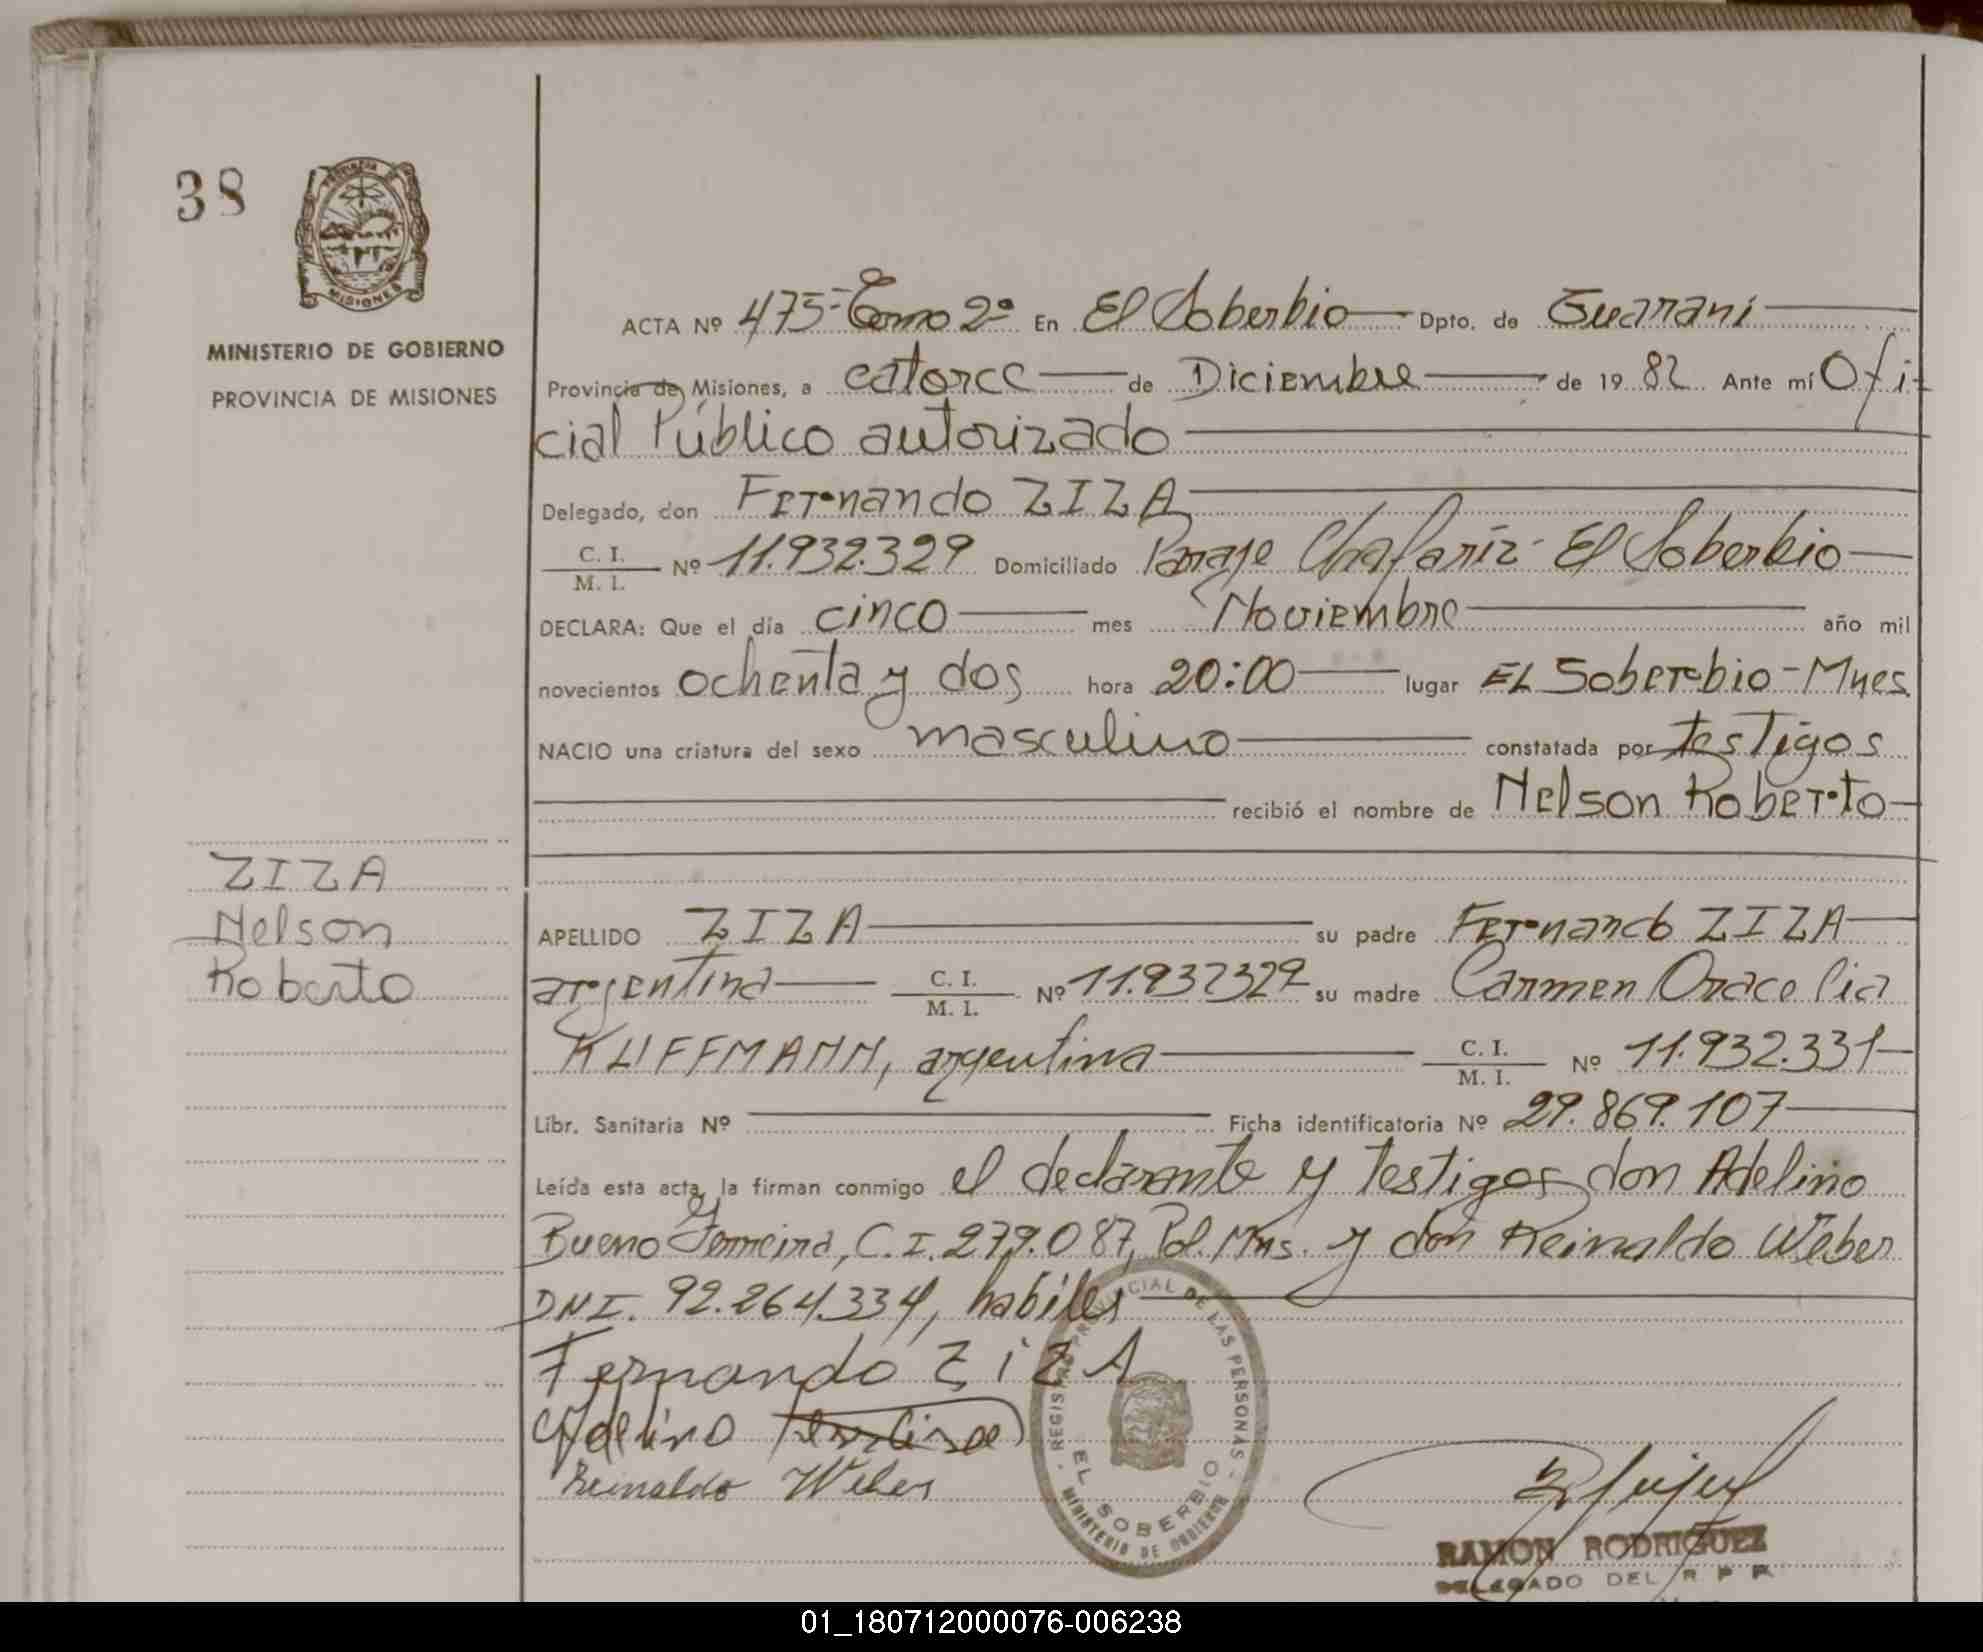 38
MISIONES
MINISTERIO DE GOBIERNO
PROVINCIA DE MISIONES
ZIZA
Nelson
Roberto
ACTA Nº 475-Tomo 2º En El Soberbio Dpto. de Guarani
Provincia de Misiones, a catorce de Diciembre de 1982 Ante mí Ofi-
cial Público autorizado
Delegado, don Fernando ZIZA
C. I.
M. I. Nº 11.932.329 Domiciliado Paraje Chafariz - El Soberbio
DECLARA: Que el día cinco mes Noviembre año mil
novecientos ochenta y dos hora 20:00 lugar EL Soberbio - Mnes
NACIO una criatura del sexo masculino constatada por testigos
recibió el nombre de Nelson Roberto
APELLIDO ZIZA su padre Fernando ZIZA
argentina C. I.
M. I. Nº 11.932329 su madre Carmen Oracelia
KUFFMANN, argentina C. I.
M. I. Nº 11.932.331
Libr. Sanitaria Nº Ficha identificatoria Nº 29.869.107
Leída esta acta, la firman conmigo el declarante y testigos don Adelino
Bueno Ferreira, C.I. 279.087, Pol. Mns. y don Reinaldo Weber
DNI. 92.264.334, habiles
Fernando ZiZA
Adelino
Reinaldo Weber
REGISTRO PROVINCIAL DE LAS PERSONAS
EL SOBERBIO
MINISTERIO DE GOBIERNO
RAMON RODRIGUEZ
DELEGADO DEL R P P
01_180712000076-006238